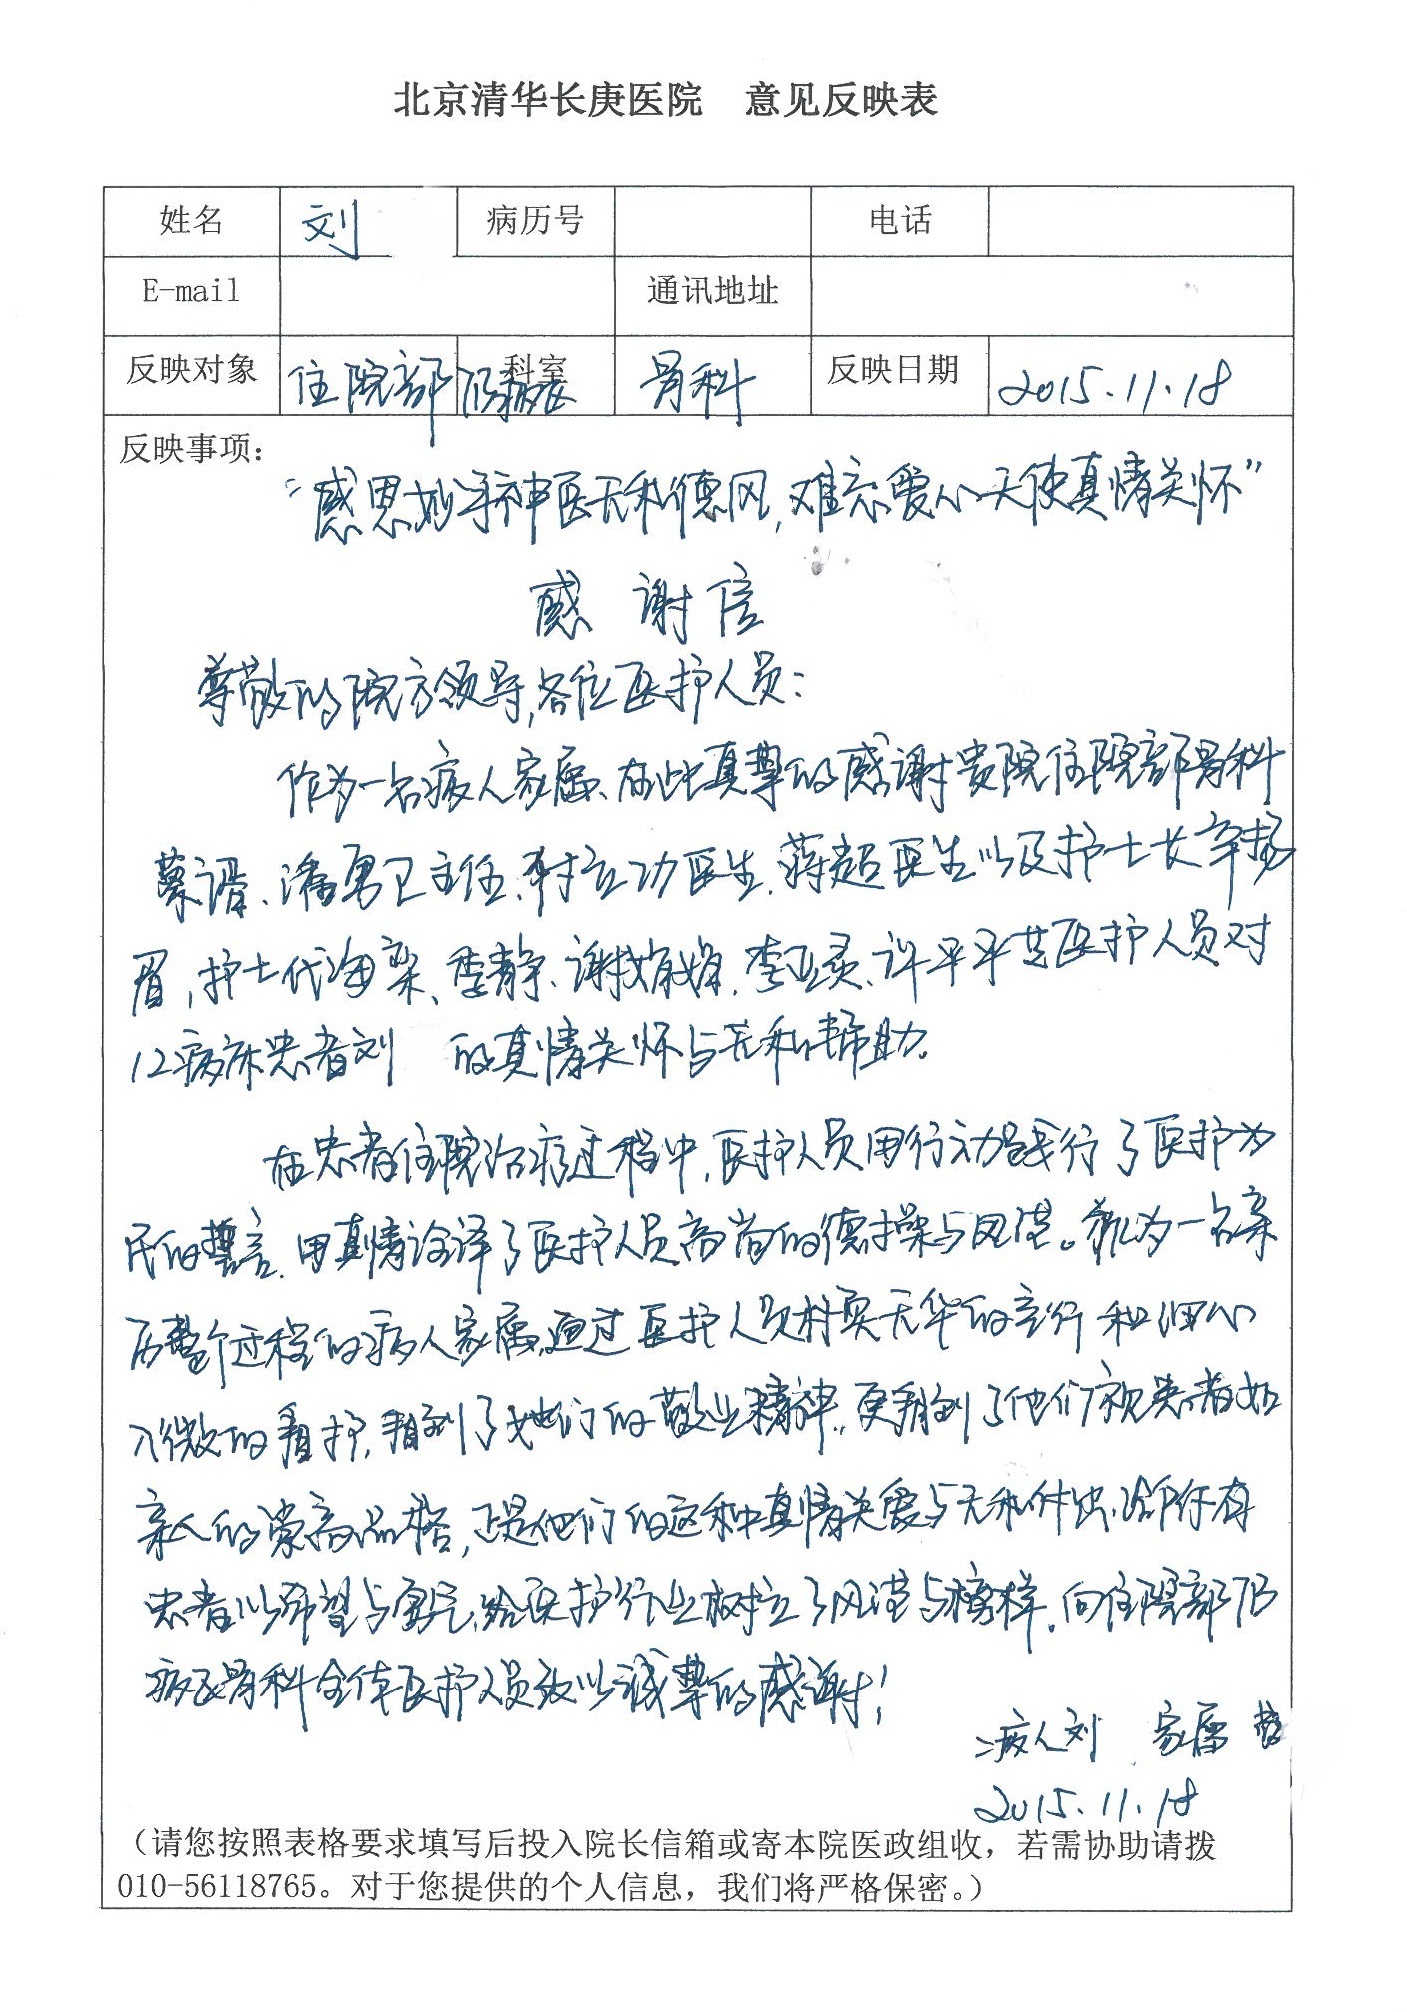 北京清华长庚医院 意见反映表
姓名 刘 病历号 电话
E-mail 通讯地址
反映对象 住院部 病区 科室 骨科 反映日期 2015.11.18
反映事项：
“感恩妙手神医无私德风，难忘爱心天使真情关怀”
感谢信
尊敬的院方领导，各位医护人员：
作为一名病人家属、在此真挚的感谢贵院住院部骨科
蔡谞、潘勇卫主任、李立功医生、蒋超医生以及护士长辛扬
眉，护士代海、季静、谢、李亚、许平平等医护人员对
12病床患者刘 的真情关怀与无私帮助.
在患者住院治疗过程中，医护人员用行动践行了医护为
民的誓言、用真情诠译了医护人员高尚的德操与风范。我为一名亲
历整个过程的病人家属，通过医护人员朴实无华的言行和细心
入微的看护，看到了她们的敬业精神，更看到了他们视患者如
亲人的崇高品格，正是他们的这种真情关爱与无私付出，给所有
患者以希望与勇气，给医护行业树立了风范与榜样。向住院部
病区骨科全体医护人员致以诚挚的感谢！
病人刘 家属
2015.11.18
（请您按照表格要求填写后投入院长信箱或寄本院医政组收，若需协助请拨
010-56118765。对于您提供的个人信息，我们将严格保密。）